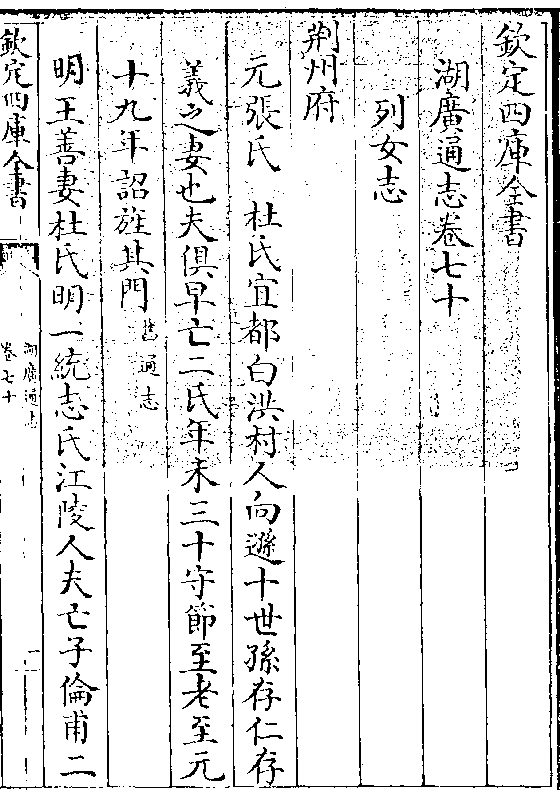 欽定四庫全書
湖廣通志卷七十
列女志
荆州府
元張氏　杜氏宜都白洪村人向遜十世孫存仁存
義之妻也夫俱早亡二氏年未三十守節至老至元
十九年詔旌其門舊通志
明王善妻杜氏明一統志氏江陵人夫亡子倫甫二
欽定四庫全書
湖廣通志
卷七十
一